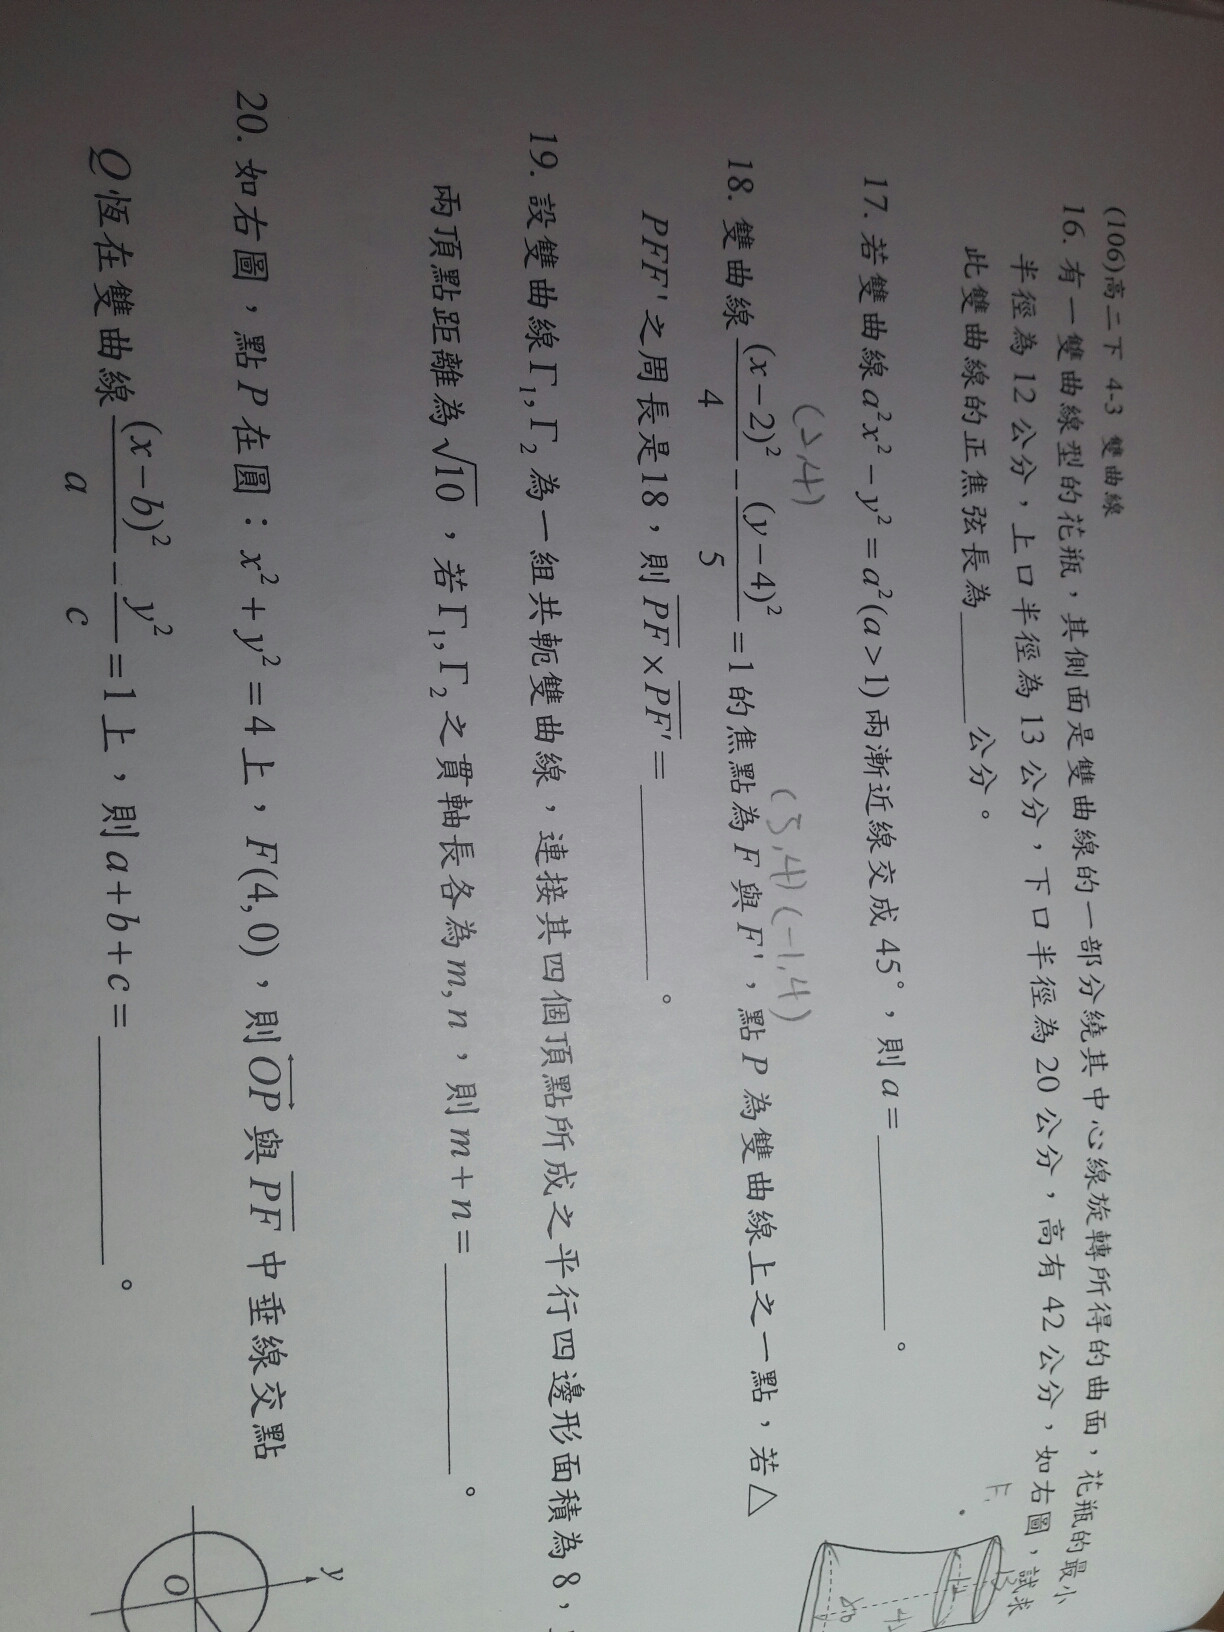 (106)高二下 4-3 雙曲線
16. 有一雙曲線型的花瓶，其側面是雙曲線的一部分繞其中心線旋轉所得的曲面，花瓶的最小
半徑為 12 公分，上口半徑為 13 公分，下口半徑為 20 公分，高有 42 公分，如右圖，試求
此雙曲線的正焦弦長為______公分。
17. 若雙曲線 a²x² − y² = a² (a > 1) 兩漸近線交成 45°，則 a = ______。
(2,4)
(5,4) (-1,4)
18. 雙曲線 (x−2)²/4 − (y−4)²/5 = 1 的焦點為 F 與 F'，點 P 為雙曲線上之一點，若△
PFF' 之周長是18，則 PF × PF' = ______。
19. 設雙曲線 Γ₁, Γ₂ 為一組共軛雙曲線，連接其四個頂點所成之平行四邊形面積為 8，
兩頂點距離為 √10，若 Γ₁, Γ₂ 之貫軸長各為 m, n，則 m + n = ______。
20. 如右圖，點 P 在圓：x² + y² = 4 上，F(4, 0)，則 OP 與 PF 中垂線交點
Q 恆在雙曲線 (x−b)²/a − y²/c = 1 上，則 a + b + c = ______。
y
O